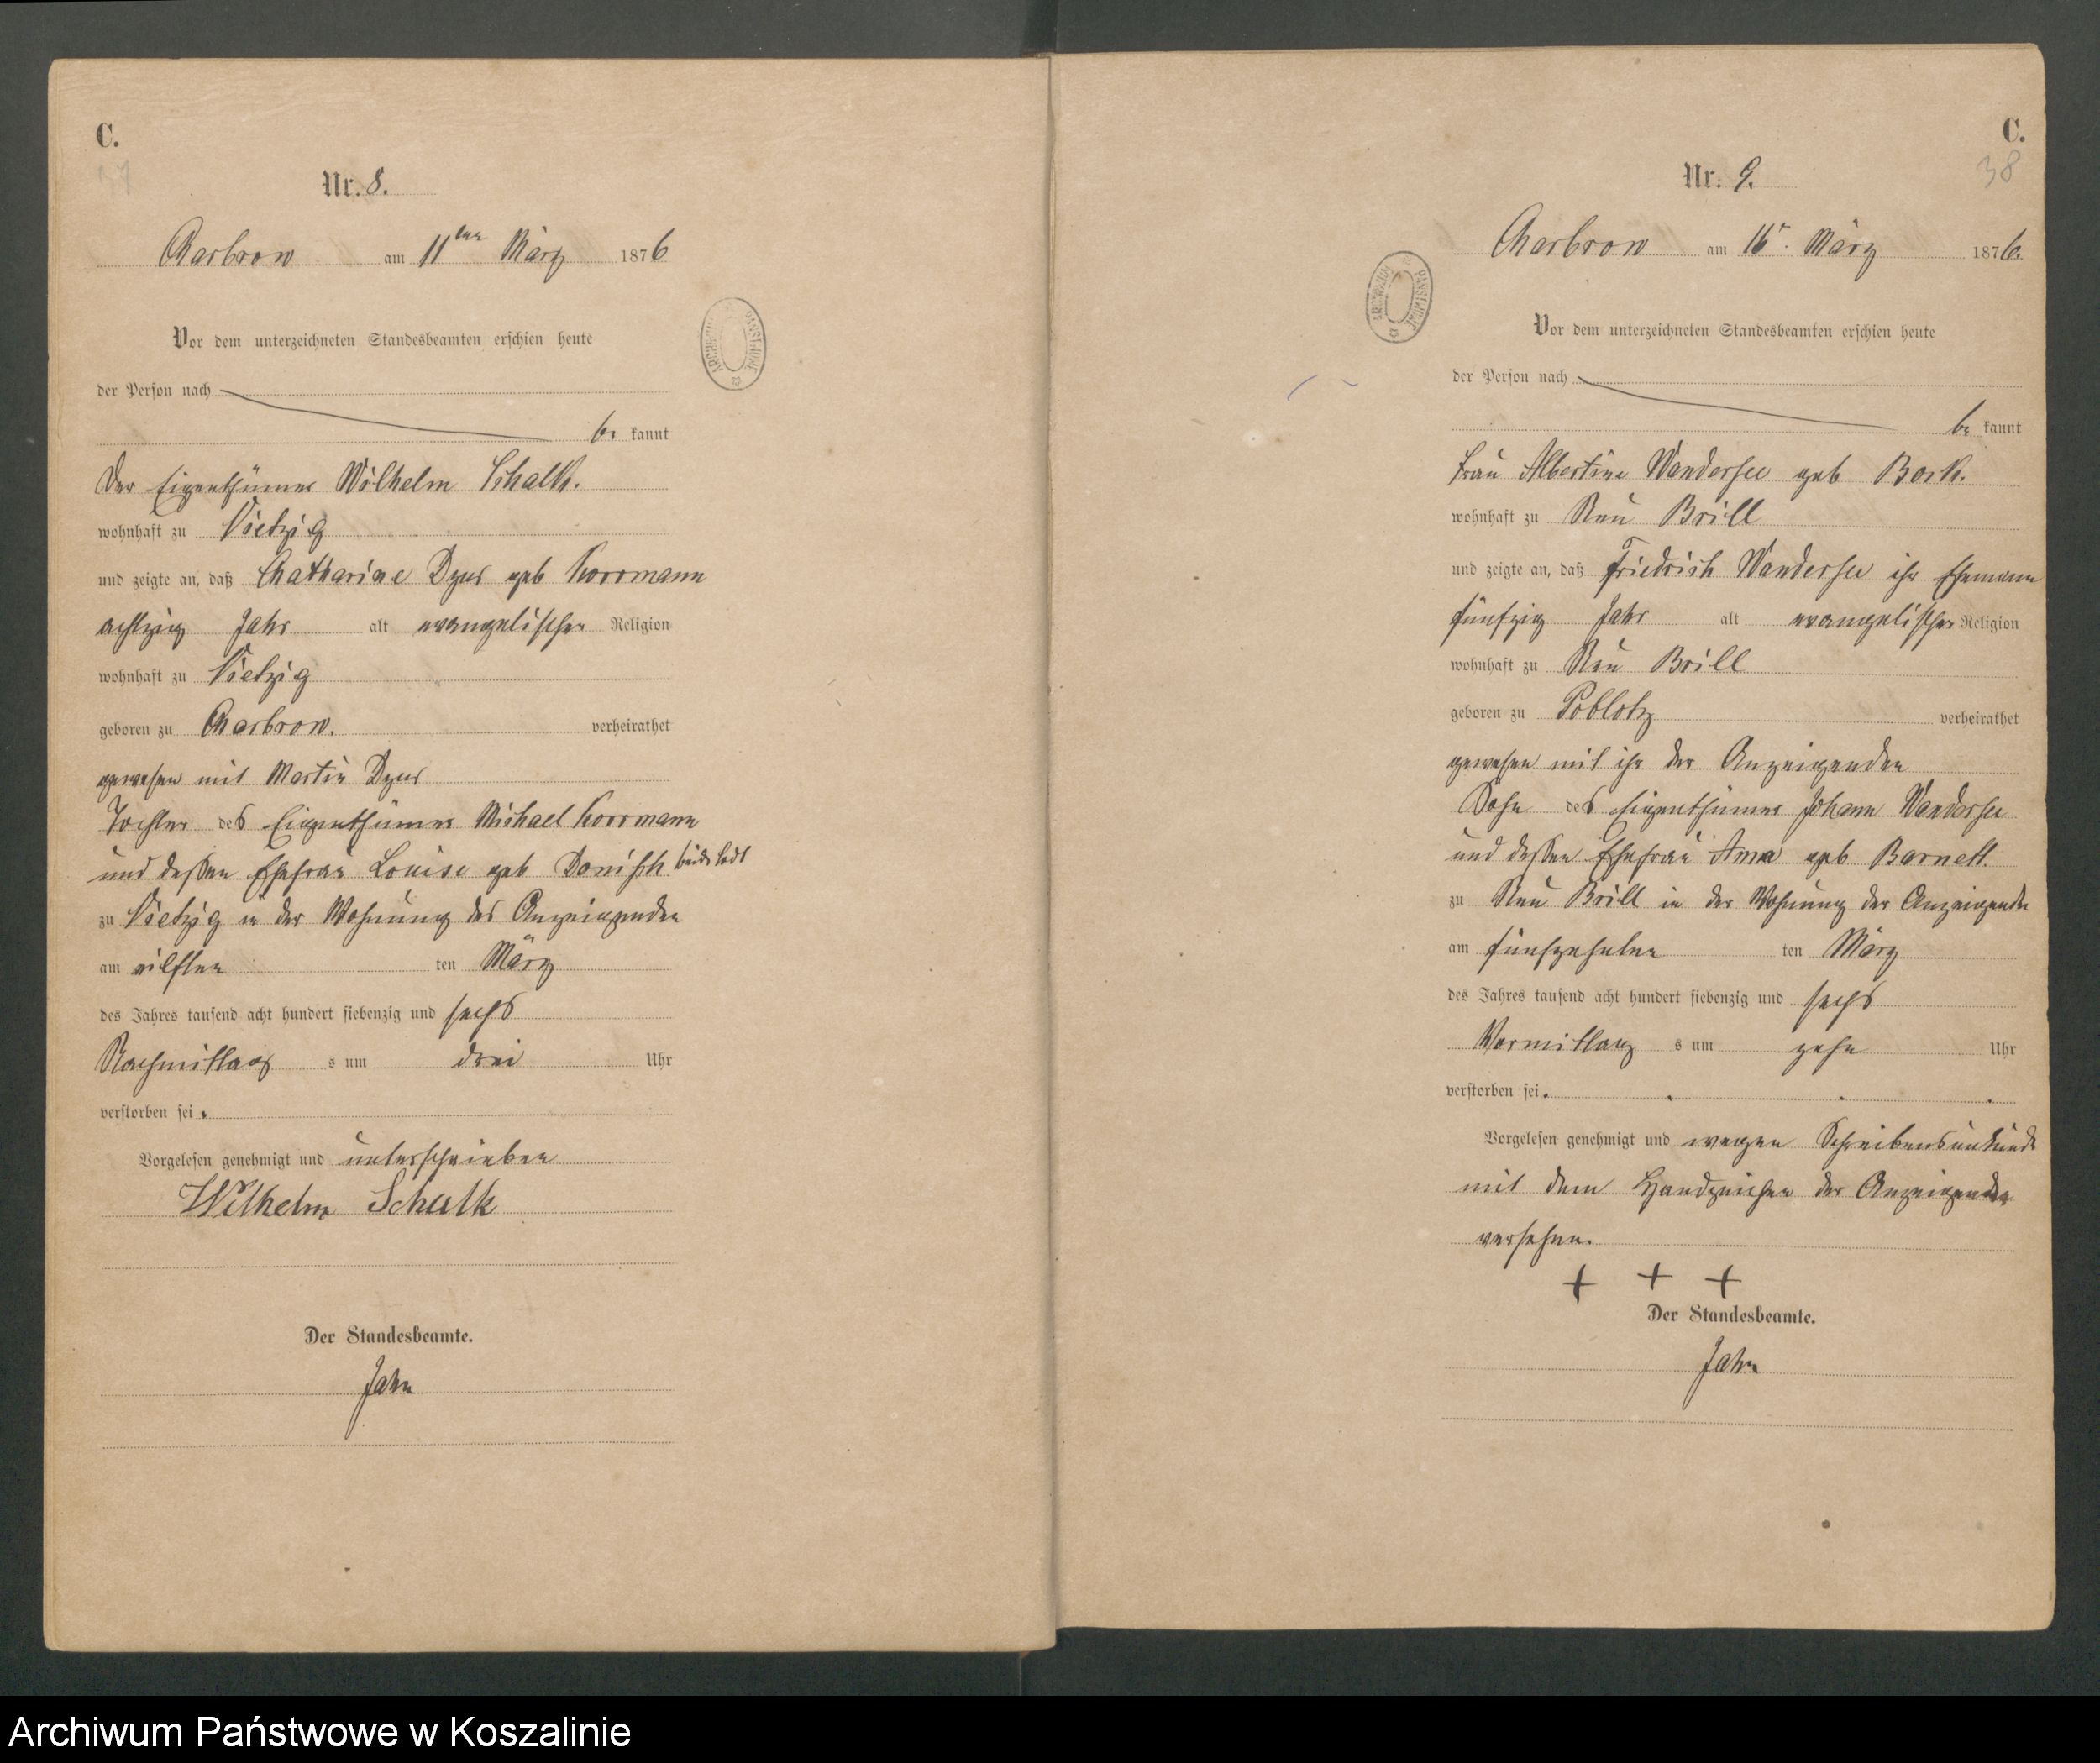 C.
37
Nr. 8.
Charbrow am 11ten März 1876
Vor dem unterzeichneten Standesbeamten erschien heute
der Person nach
be kannt
Der Eigenthümer Wilhelm Schalk.
wohnhaft zu Vietzig
und zeigte an, daß Chatharine Dzus geb Korrmann
achtzig Jahr alt evangelischer Religion
wohnhaft zu Vietzig
geboren zu Charbrow. verheirathet
gewesen mit Martin Dzus
Tochter des Eigenthümer Michael Korrmann
und dessen Ehefrau Louise geb Donisch beide todt
zu Vietzig in der Wohnung des Anzeigenden
am eilften ten März
des Jahres tausend acht hundert siebenzig und sechs
Nachmittag s um drei Uhr
verstorben sei.
Vorgelesen genehmigt und unterschrieben
Wilhelm Schalk
Der Standesbeamte.
Jahn
C.
38
Nr. 9.
Charbrow am 16t. März 1876.
Vor dem unterzeichneten Standesbeamten erschien heute
der Person nach
be kannt
Frau Albertine Wandersee geb Bork.
wohnhaft zu Neu Brill
und zeigte an, daß Friedrich Wandersee ihr Ehemann
fünfzig Jahr alt evangelischer Religion
wohnhaft zu Neu Brill
geboren zu Poblotz verheirathet
gewesen mit ihr der Anzeigenden
Sohn des Eigenthümer Johann Wandersee
und dessen Ehefrau Anna geb Barnett.
zu Neu Brill in der Wohnung der Anzeigenden
am fünfzehnten ten März
des Jahres tausend acht hundert siebenzig und sechs
Vormittag s um zehn Uhr
verstorben sei.
Vorgelesen genehmigt und wegen Schreibensunkunde
mit dem Handzeichen der Anzeigenden
versehen.
+ + +
Der Standesbeamte.
Jahn
Archiwum Państwowe w Koszalinie